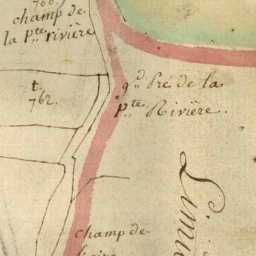 champ de
la p.te rivière
t.
762.
g.d Pré de la
p.te Rivière.
Limi
champ de